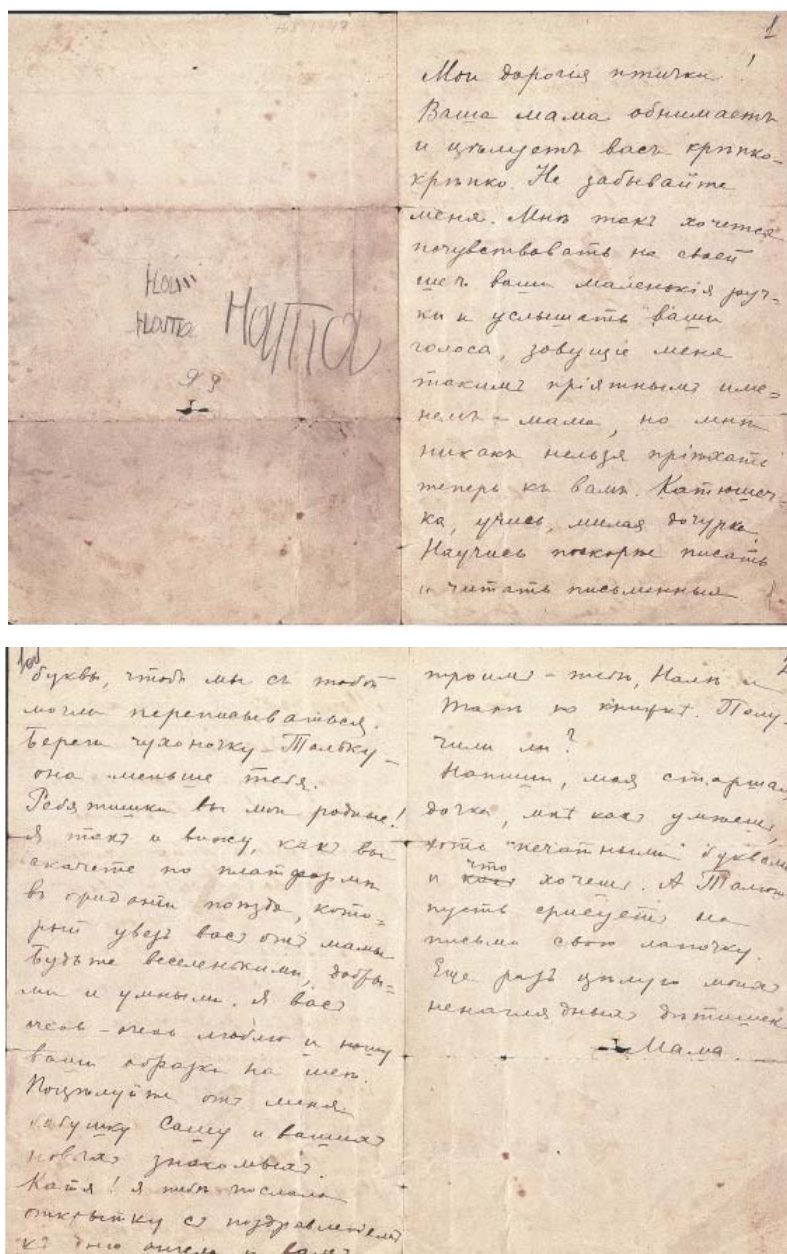 1
Мои дорогія птички!
Ваша мама обнимаетъ
и цѣлуетъ васъ крѣпко-
крѣпко. Не забывайте
меня. Мнѣ такъ хочется
почувствовать на своей
шеѣ ваши маленькія руч-
ки и услышать ваши
голоса, зовущіе меня
такимъ пріятнымъ име=
немъ - мама, но мнѣ
никакъ нельзя пріѣхать
теперь къ вамъ. Катюшеч-
ка, учись, милая дочурка.
Научись поскорѣе писать
и читать письменныя
Ната
Ната
буквы, чтобы мы съ тобой
могли переписываться.
Береги чухоночку - Тальку -
она меньше тебя.
Ребятишки вы мои родные!
Я такъ и вижу, какъ вы
скачете по платформѣ
въ ожиданіи поѣзда, кото=
рый увезъ васъ отъ мамы
Будьте веселенькими, добры=
ми и умными. Я васъ
очень - очень люблю и ношу
ваши образки на шеѣ.
Поцѣлуйте отъ меня
бабушку Сашу и вашихъ
новыхъ знакомыхъ.
Катя! я тебѣ послала
открытку съ поздравленіемъ
къ дню ангела и вамъ
2
троимъ - тебѣ, Налѣ и
по книжкѣ. Полу-
чили ли?
Напиши, моя старшая
дочка, мнѣ какъ умѣешь,
хоть "печатными" буквами
и что хочешь. А
пусть срисуетъ на
письмо свою лапочку.
Еще разъ цѣлую моихъ
ненаглядныхъ дѣтишек
Мама.